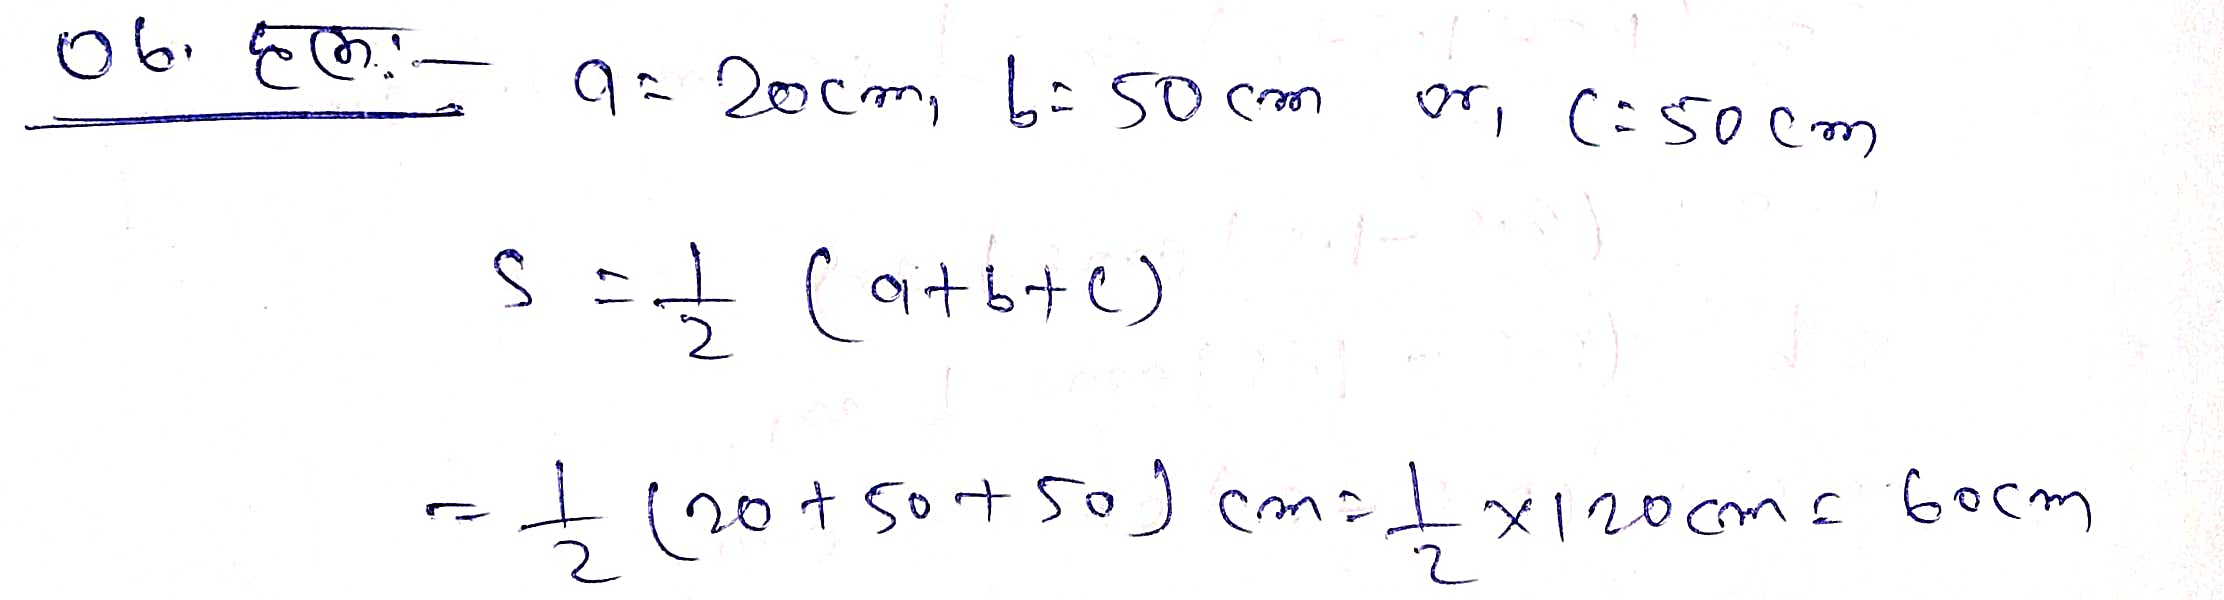 06. हल:— a = 20cm, b = 50 cm or, c = 50 cm
S = 1/2 (a+b+c)
= 1/2 (20 + 50 + 50) cm = 1/2 × 120cm = 60cm